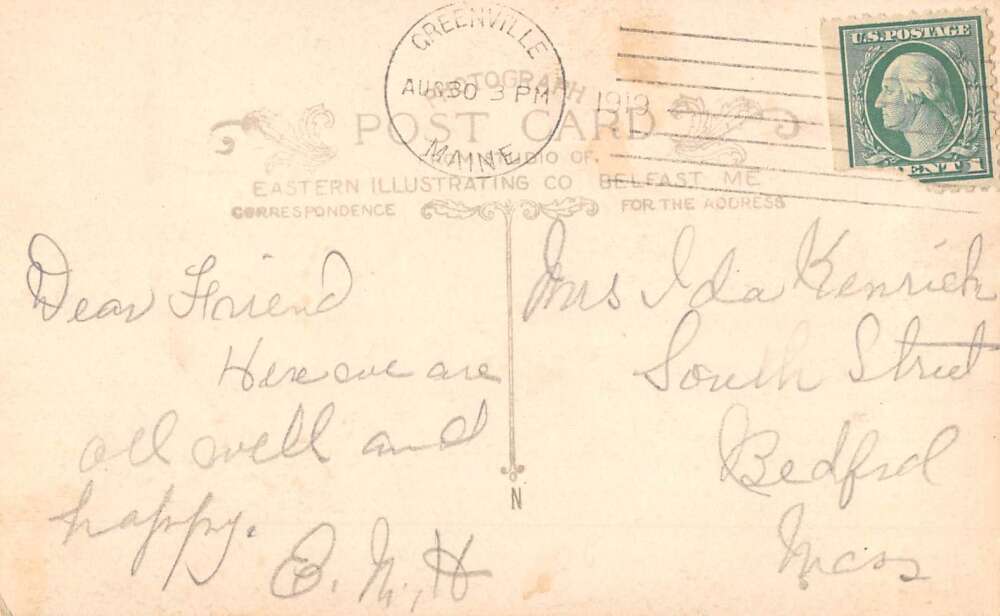 GREENVILLE
AUG 30 3 PM 1913
MAINE
U.S. POSTAGE
PHOTOGRAPH
POST CARD
STUDIO OF
EASTERN ILLUSTRATING CO BELFAST ME
CORRESPONDENCE
FOR THE ADDRESS
Dear Friend
Here we are
all well and
happy.
E. M. H
Mrs Ida Kenrick
South Street
Bedford
Mass
N